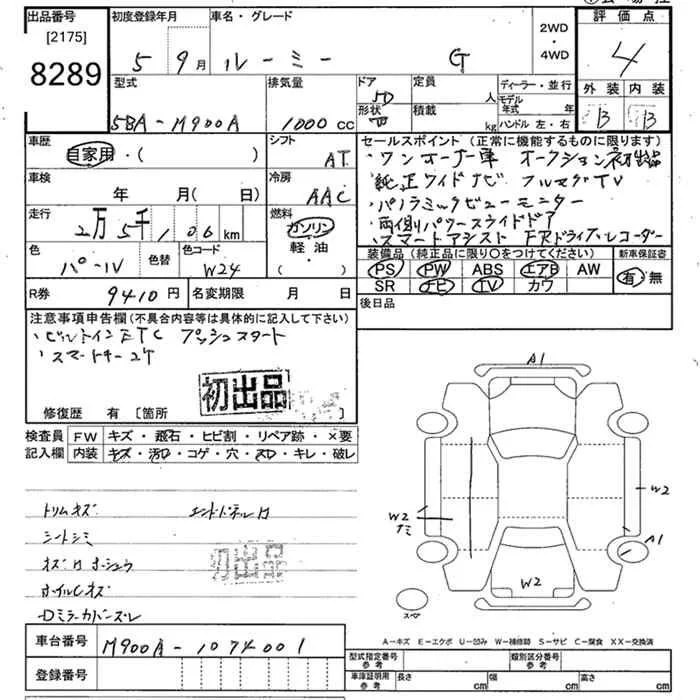 出品番号 初度登録年月 車名・グレード 評価点
[2175]
8289
5 9月 ルーミー G 2WD・4WD 4
型式 排気量 ドア形状 定員 ディーラー・並行 外装 内装
5BA-M900A 1000cc 5D 人 モデル年式 年 B B
積載 kg ハンドル 左・右
車歴 シフト セールスポイント (正常に機能するものに限ります)
自家用・( ) AT ・ワンオーナー車 オークション初出品
車検 冷房 ・純正ワイドナビ フルセグTV
年 月(日) AAC ・パノラミックビューモニター
走行 燃料 ・両側パワースライドドア
2万5千106km ガソリン ・スマートアシスト FRドライブレコーダー
軽油
・( )
色 色替 色コード 装備品 (純正品に限り○をつけてください) 新車保証書
パール W24 PS PW ABS エアB AW 有・無
SR ナビ TV カワ
R券 9410円 名変期限 月 日 後日品
注意事項申告欄(不具合内容等は具体的に記入して下さい)
・ビルトインETC プッシュスタート
・スマートキー2ケ
初出品
修復歴 有 〔箇所 〕
検査員 FW キズ・飛石・ヒビ割・リペア跡・×要
記入欄 内装 キズ・汚れ・コゲ・穴・スレ・キレ・破レ
A1
トリムキズ
シートシミ
W2
W2
ナミ
A1
初出品
ホイルCキズ
DミラーカバーズレW2
スペア
A-キズ E-エクボ U-凹み W-補修跡 S-サビ C-腐食 XX-交換済
車台番号 M900A-1074001
登録番号
型式指定番号 参考 類別区分番号 参考
車庫証明用 参考 長さ cm 幅 cm 高さ cm